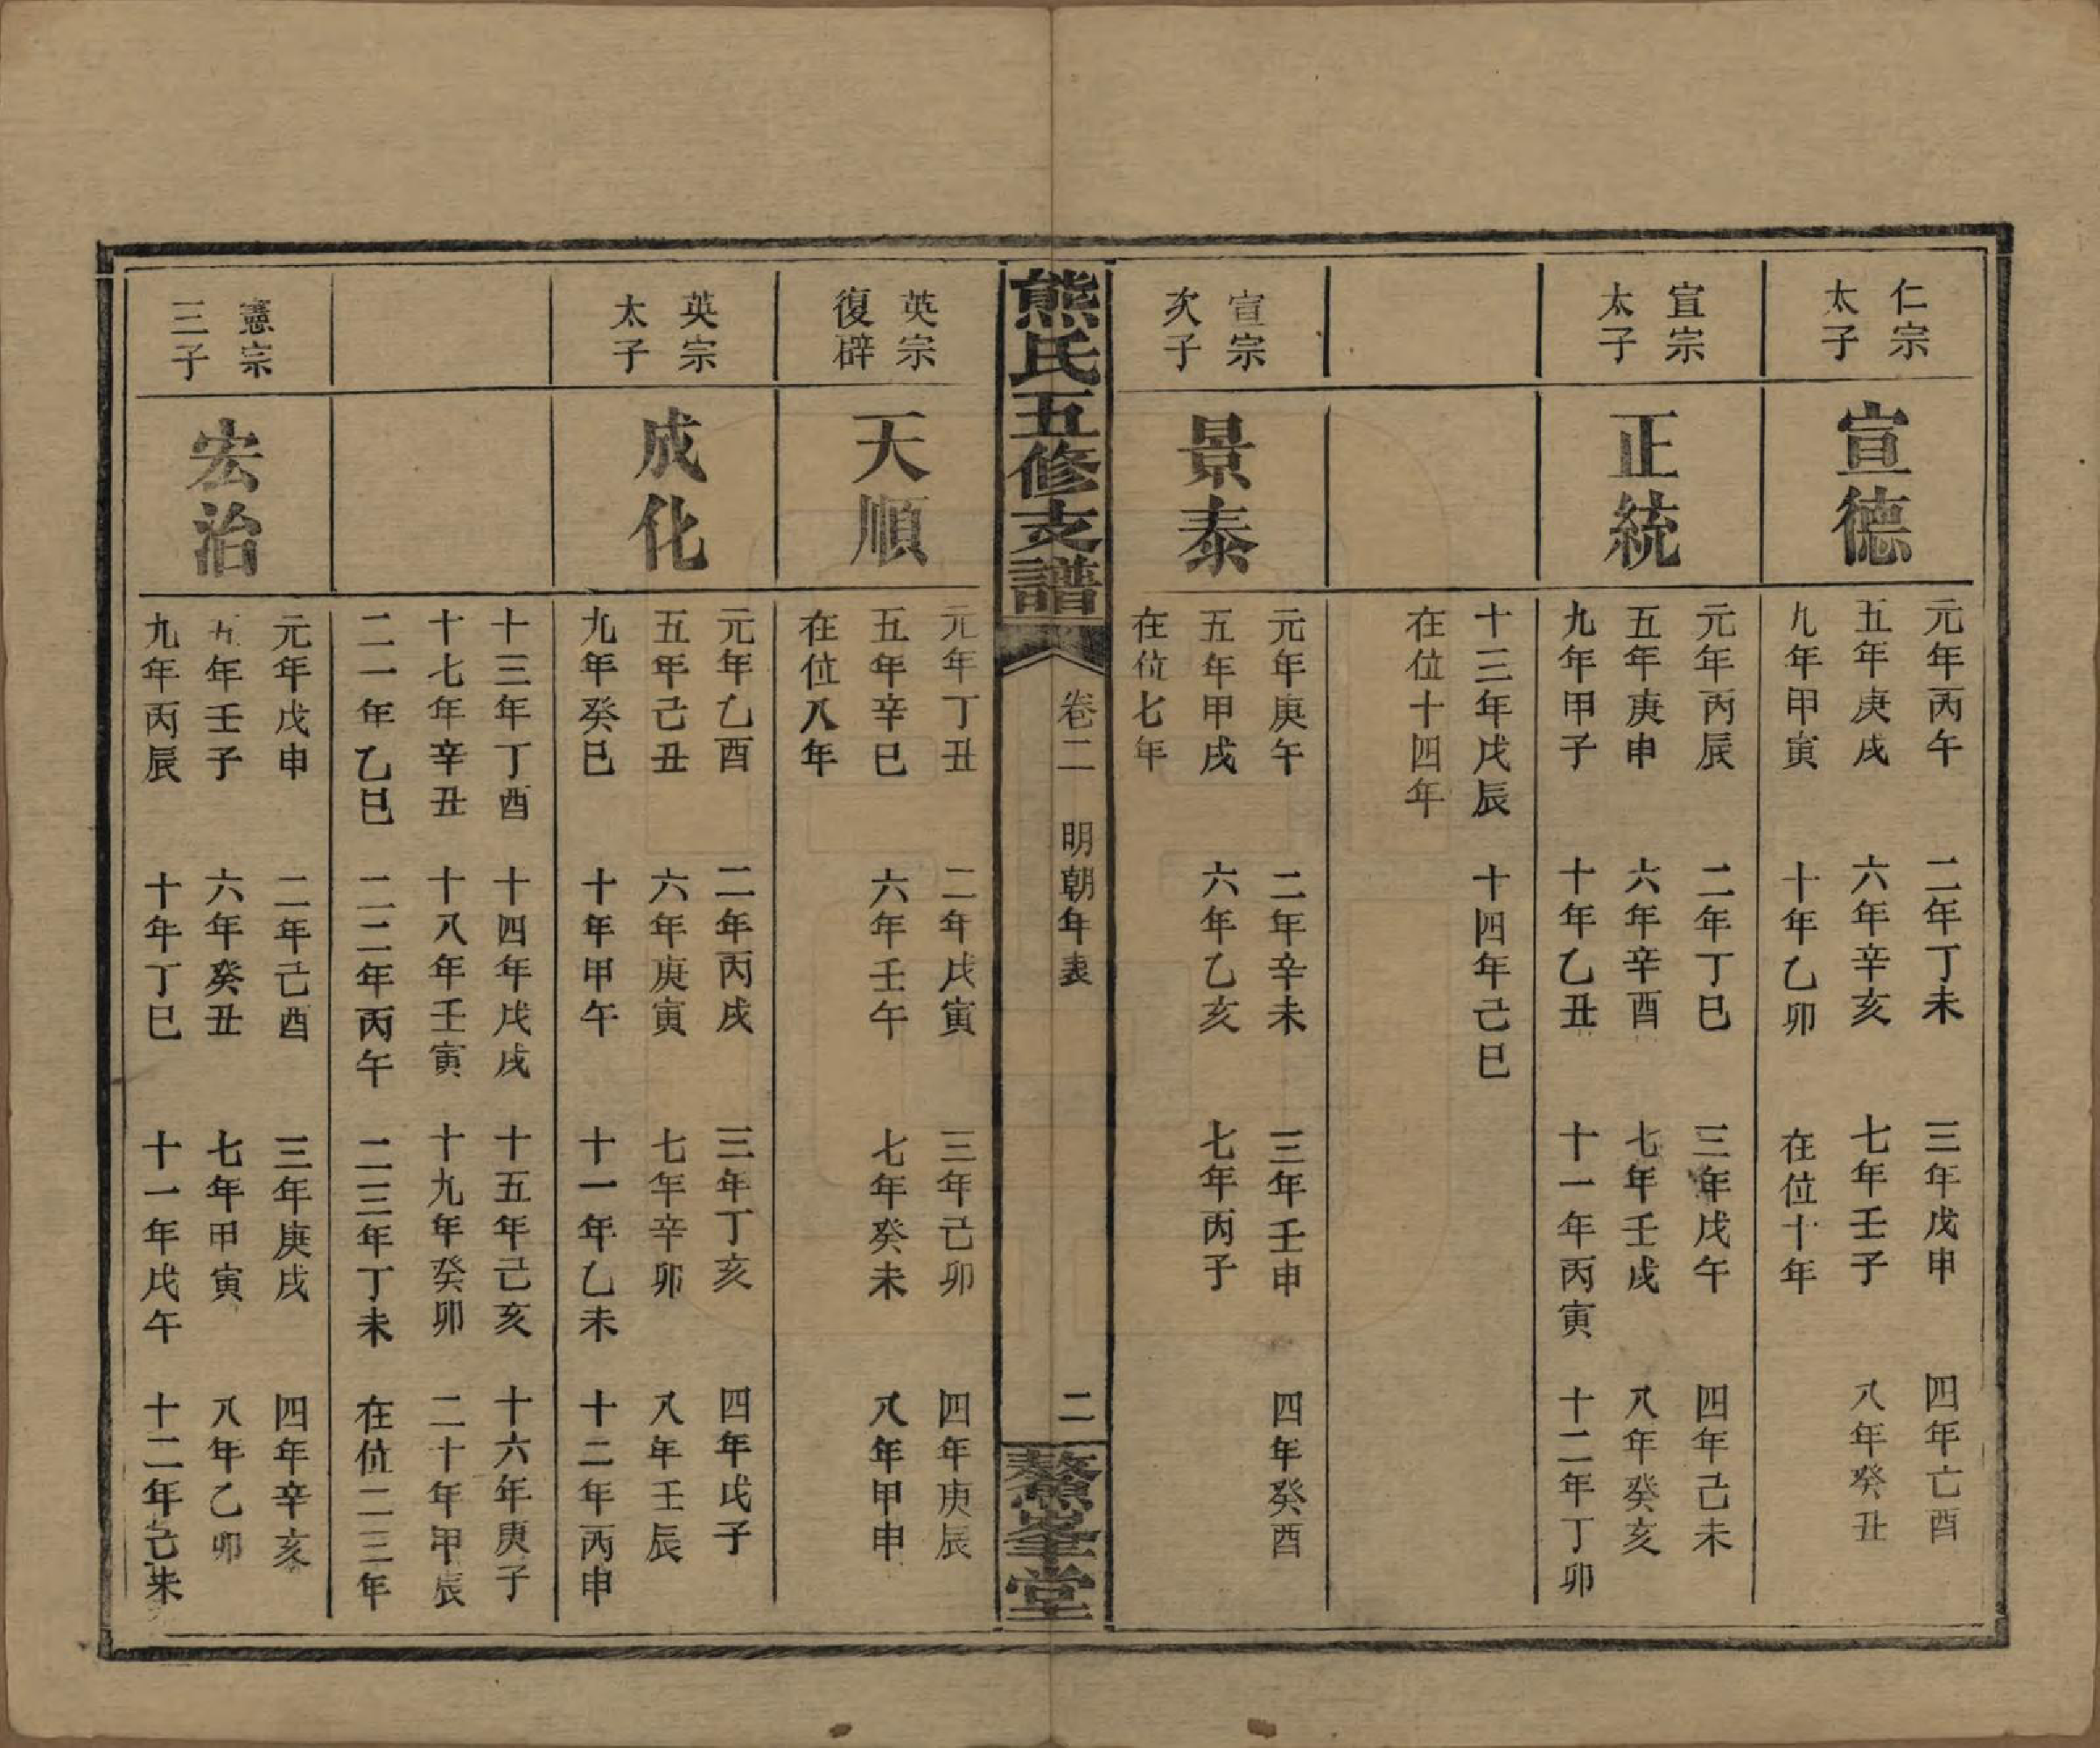 仁宗
太子
宣德
元年丙午 二年丁未 三年戊申 四年亡酉
五年庚戌 六年辛亥 七年壬子 八年癸丑
九年甲寅 十年乙卯 在位十年
宣宗
太子
正統
元年丙辰 二年丁巳 三年戊午 四年己未
五年庚申 六年辛酉 七年壬戌 八年癸亥
九年甲子 十年乙丑 十一年丙寅 十二年丁卯
十三年戊辰 十四年己巳
在位十四年
宣宗
次子
景泰
元年庚午 二年辛未 三年壬申 四年癸酉
五年甲戌 六年乙亥 七年丙子
在位七年
熊氏五修支譜 卷二 明朝年表 二 鰲峯堂
英宗
復辟
天順
元年丁丑 二年戊寅 三年己卯 四年庚辰
五年辛巳 六年壬午 七年癸未 八年甲申
在位八年
英宗
太子
成化
元年乙酉 二年丙戌 三年丁亥 四年戊子
五年己丑 六年庚寅 七年辛卯 八年壬辰
九年癸巳 十年甲午 十一年乙未 十二年丙申
十三年丁酉 十四年戊戌 十五年己亥 十六年庚子
十七年辛丑 十八年壬寅 十九年癸卯 二十年甲辰
二一年乙巳 二二年丙午 二三年丁未 在位二三年
憲宗
三子
宏治
元年戊申 二年己酉 三年庚戌 四年辛亥
五年壬子 六年癸丑 七年甲寅 八年乙卯
九年丙辰 十年丁巳 十一年戊午 十二年己未